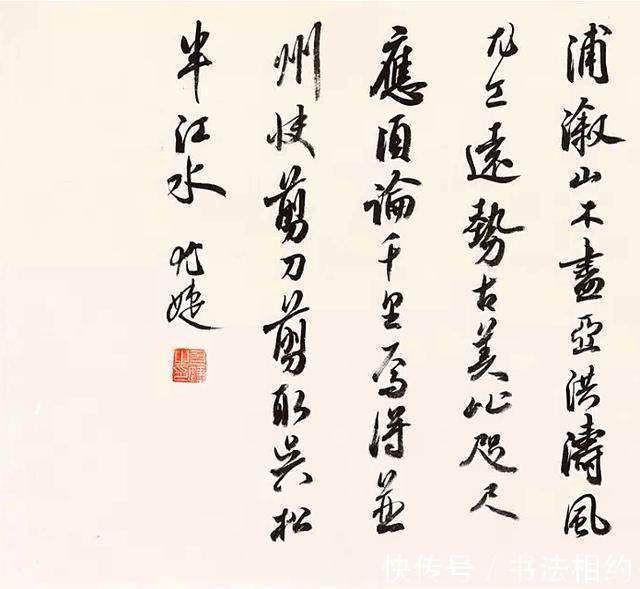 浦溆山木盡亞洪濤風
尤工遠勢古莫比咫尺
應須論千里焉得並
州快剪刀剪取吳松
半江水
快传号 / 书法相约